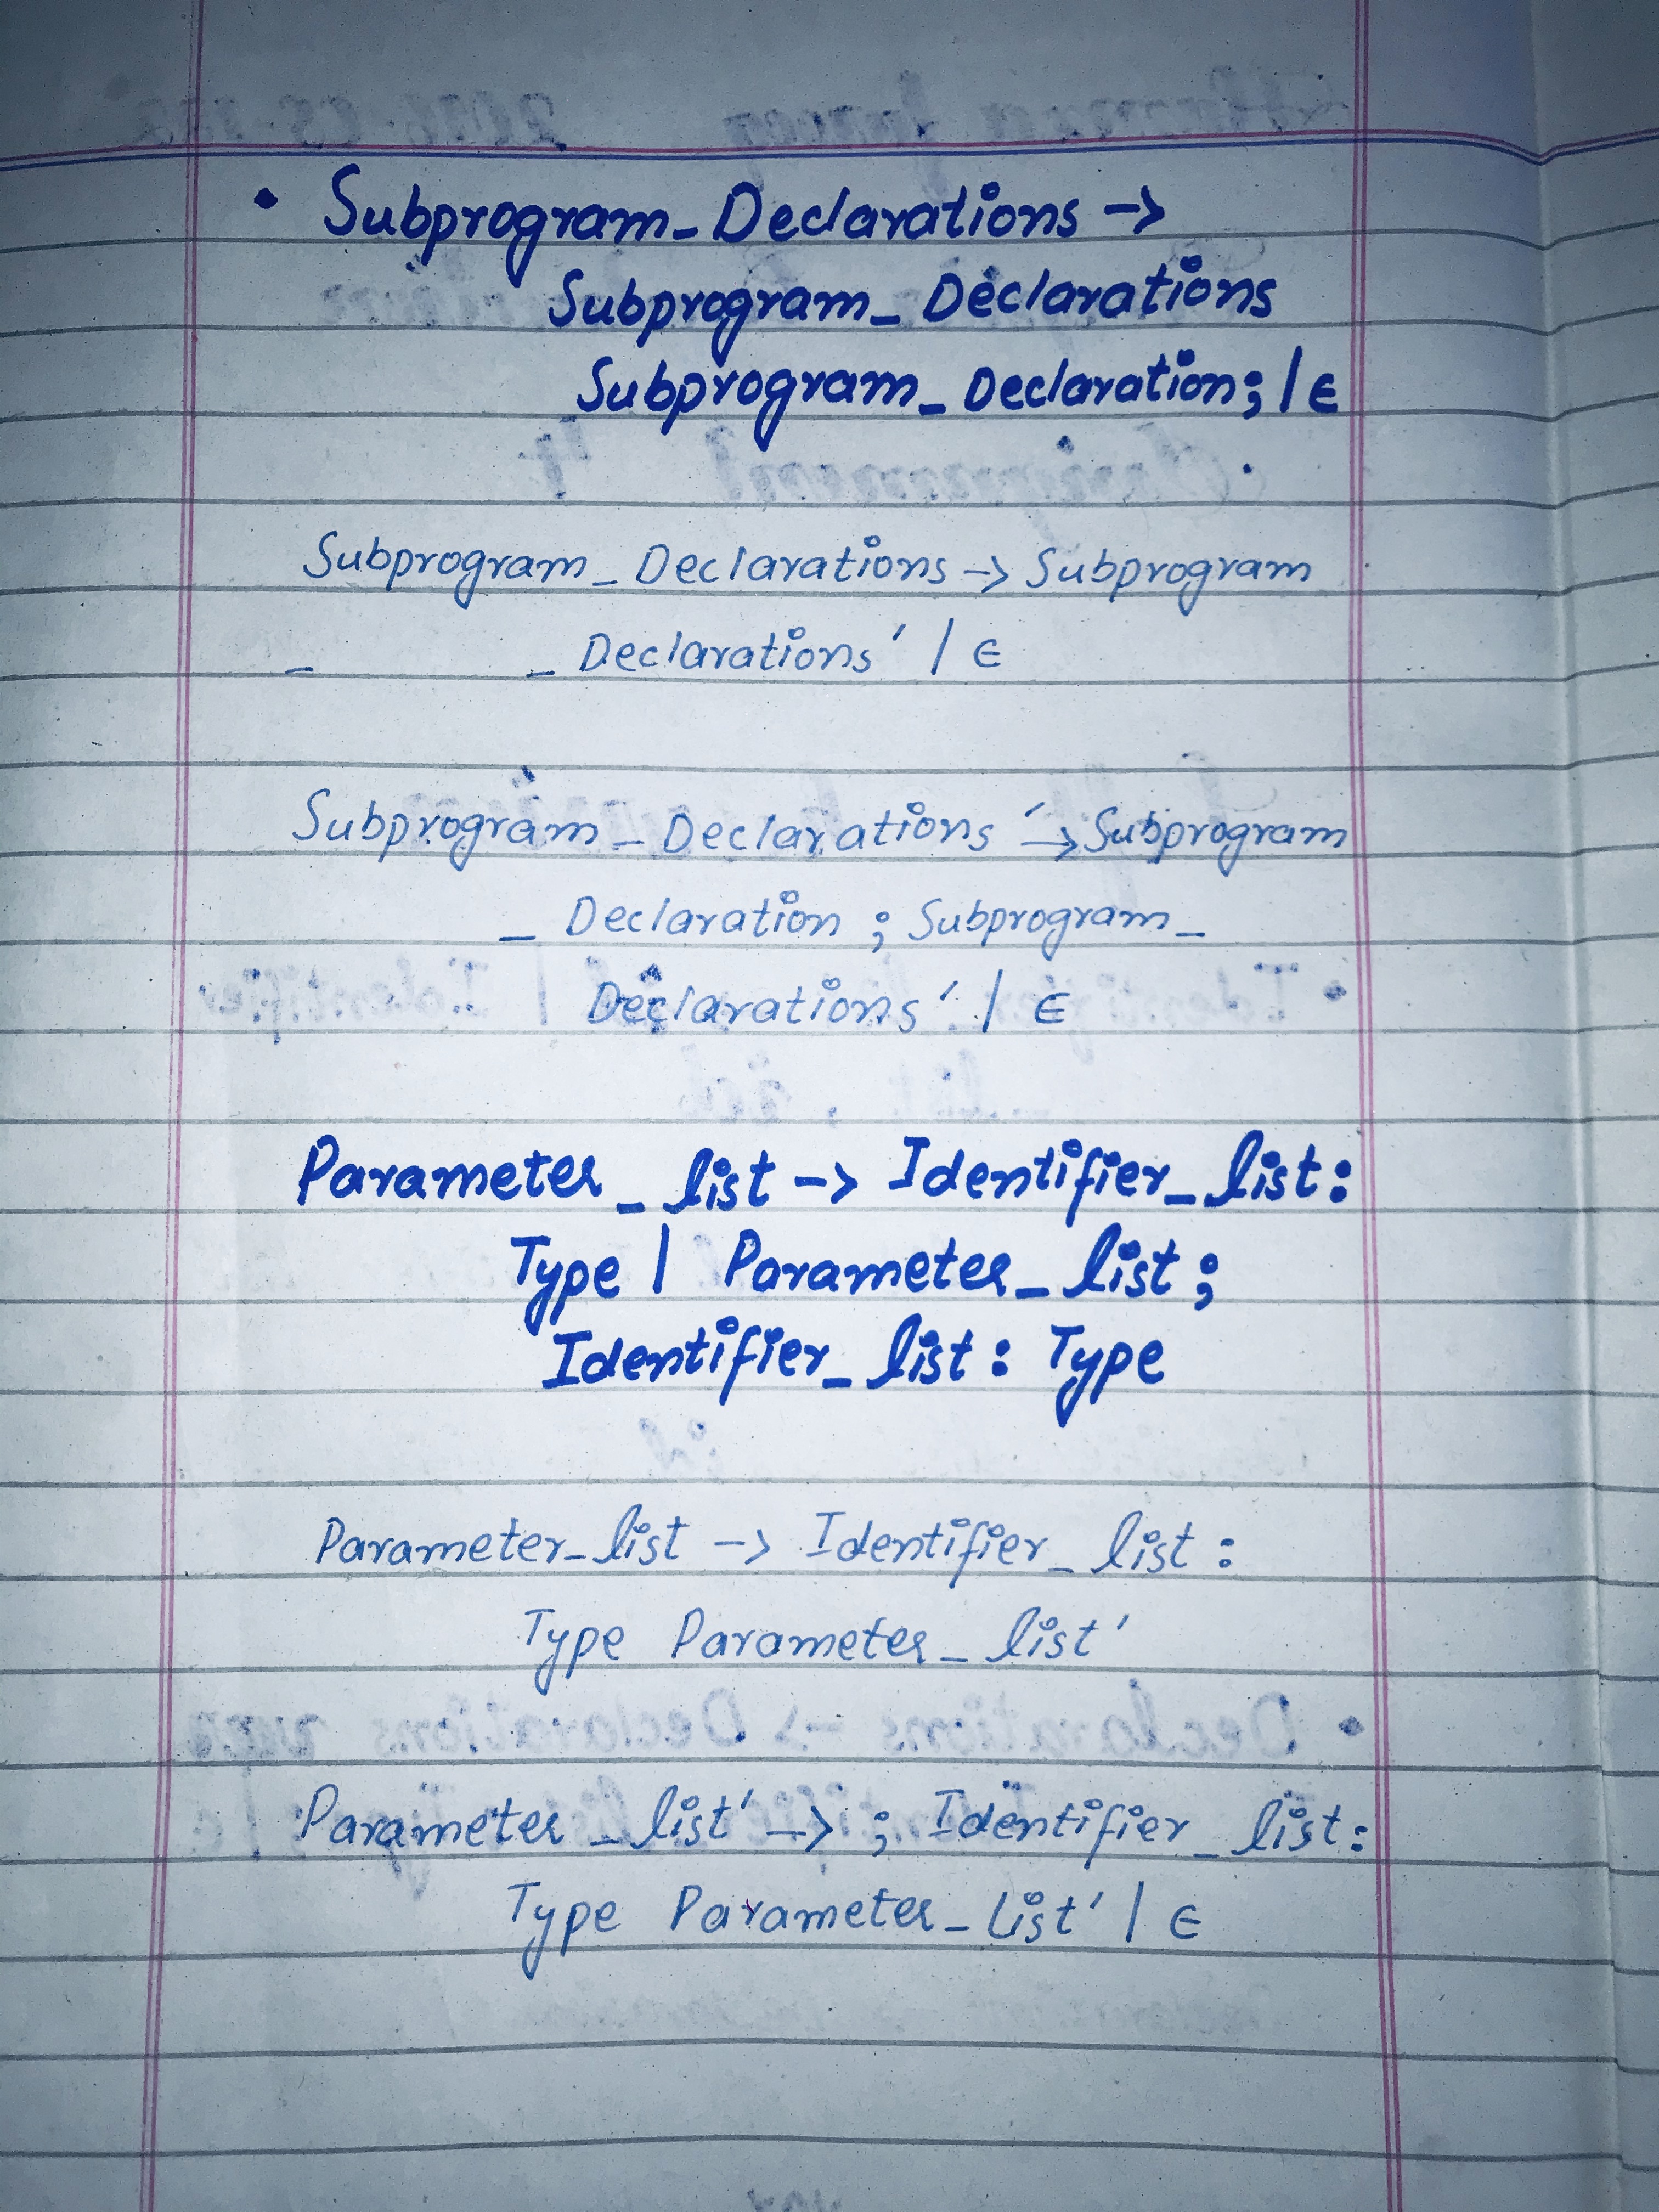 • Subprogram_Declarations ->
Subprogram_Declarations
Subprogram_Declaration; | ϵ
Subprogram_Declarations -> Subprogram
_ _ Declarations' | ϵ
Subprogram_Declarations' -> Subprogram
_ Declaration ; Subprogram_
Declarations' | ϵ
Parameter_list -> Identifier_list:
Type | Parameter_list ;
Identifier_list : Type
Parameter_list -> Identifier_list :
Type Parameter_list'
Parameter_list' -> ; Identifier_list:
Type Parameter_list' | ϵ